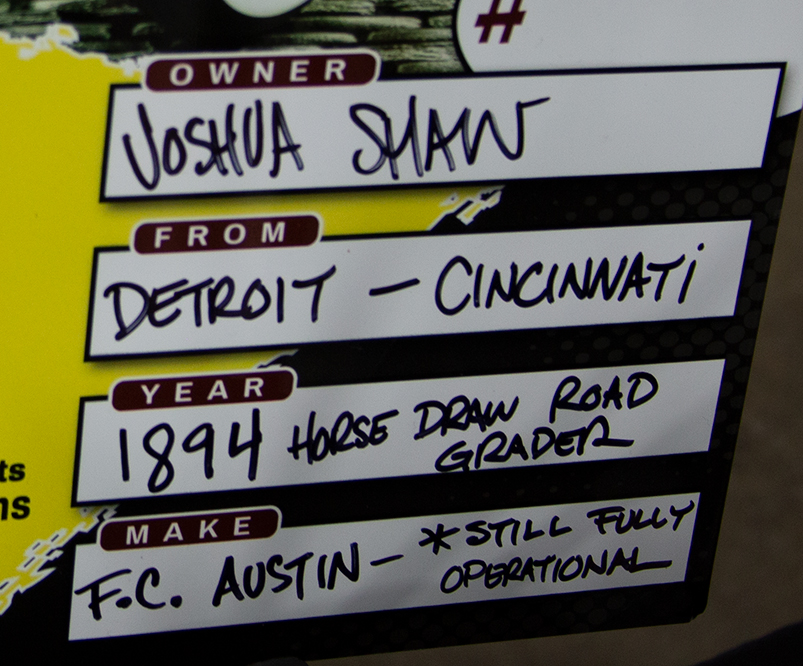 #
OWNER
JOSHUA SHAW
FROM
DETROIT - CINCINNATi
YEAR
1894 HORSE DRAW ROAD
GRADER
MAKE
F.C. AUSTIN - *STILL FULLY
OPERATIONAL
ts
ns